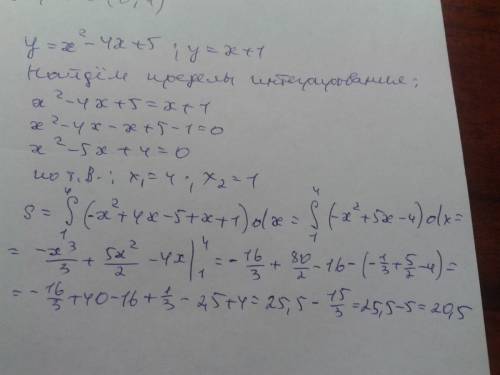 y = x² - 4x + 5 ; y = x + 1
Найдём пределы интегрирования;
x² - 4x + 5 = x + 1
x² - 4x - x + 5 - 1 = 0
x² - 5x + 4 = 0
по т. В.: x₁ = 4 ; x₂ = 1
S = ∫₁⁴ (-x² + 4x - 5 + x + 1) dx = ∫₁⁴ (-x² + 5x - 4) dx =
= -x³/3 + 5x²/2 - 4x |₁⁴ = - 16/3 + 80/2 - 16 - (-1/3 + 5/2 - 4) =
= - 16/3 + 40 - 16 + 1/3 - 2,5 + 4 = 25,5 - 15/3 = 25,5 - 5 = 20,5